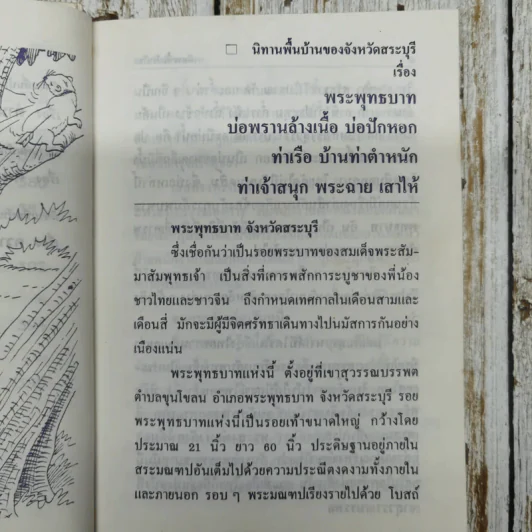 □ นิทานพื้นบ้านของจังหวัดสระบุรี
เรื่อง
พระพุทธบาท
บ่อพรานล้างเนื้อ บ่อปักหอก
ท่าเรือ บ้านท่าตำหนัก
ท่าเจ้าสนุก พระฉาย เสาไห้
พระพุทธบาท จังหวัดสระบุรี
ซึ่งเชื่อกันว่าเป็นรอยพระบาทของสมเด็จพระสัม-
มาสัมพุทธเจ้า เป็นสิ่งที่เคารพสักการะบูชาของพี่น้อง
ชาวไทยและชาวจีน ถึงกำหนดเทศกาลในเดือนสามและ
เดือนสี่ มักจะมีผู้มีจิตศรัทธาเดินทางไปนมัสการกันอย่าง
เนืองแน่น
พระพุทธบาทแห่งนี้ ตั้งอยู่ที่เขาสุวรรณบรรพต
ตำบลขุนโขลน อำเภอพระพุทธบาท จังหวัดสระบุรี รอย
พระพุทธบาทแห่งนี้เป็นรอยเท้าขนาดใหญ่ กว้างโดย
ประมาณ 21 นิ้ว ยาว 60 นิ้ว ประดิษฐานอยู่ภายใน
สระมณฑปอันเต็มไปด้วยความประณีตงดงามทั้งภายใน
และภายนอก รอบ ๆ พระมณฑปเรียงรายไปด้วย โบสถ์